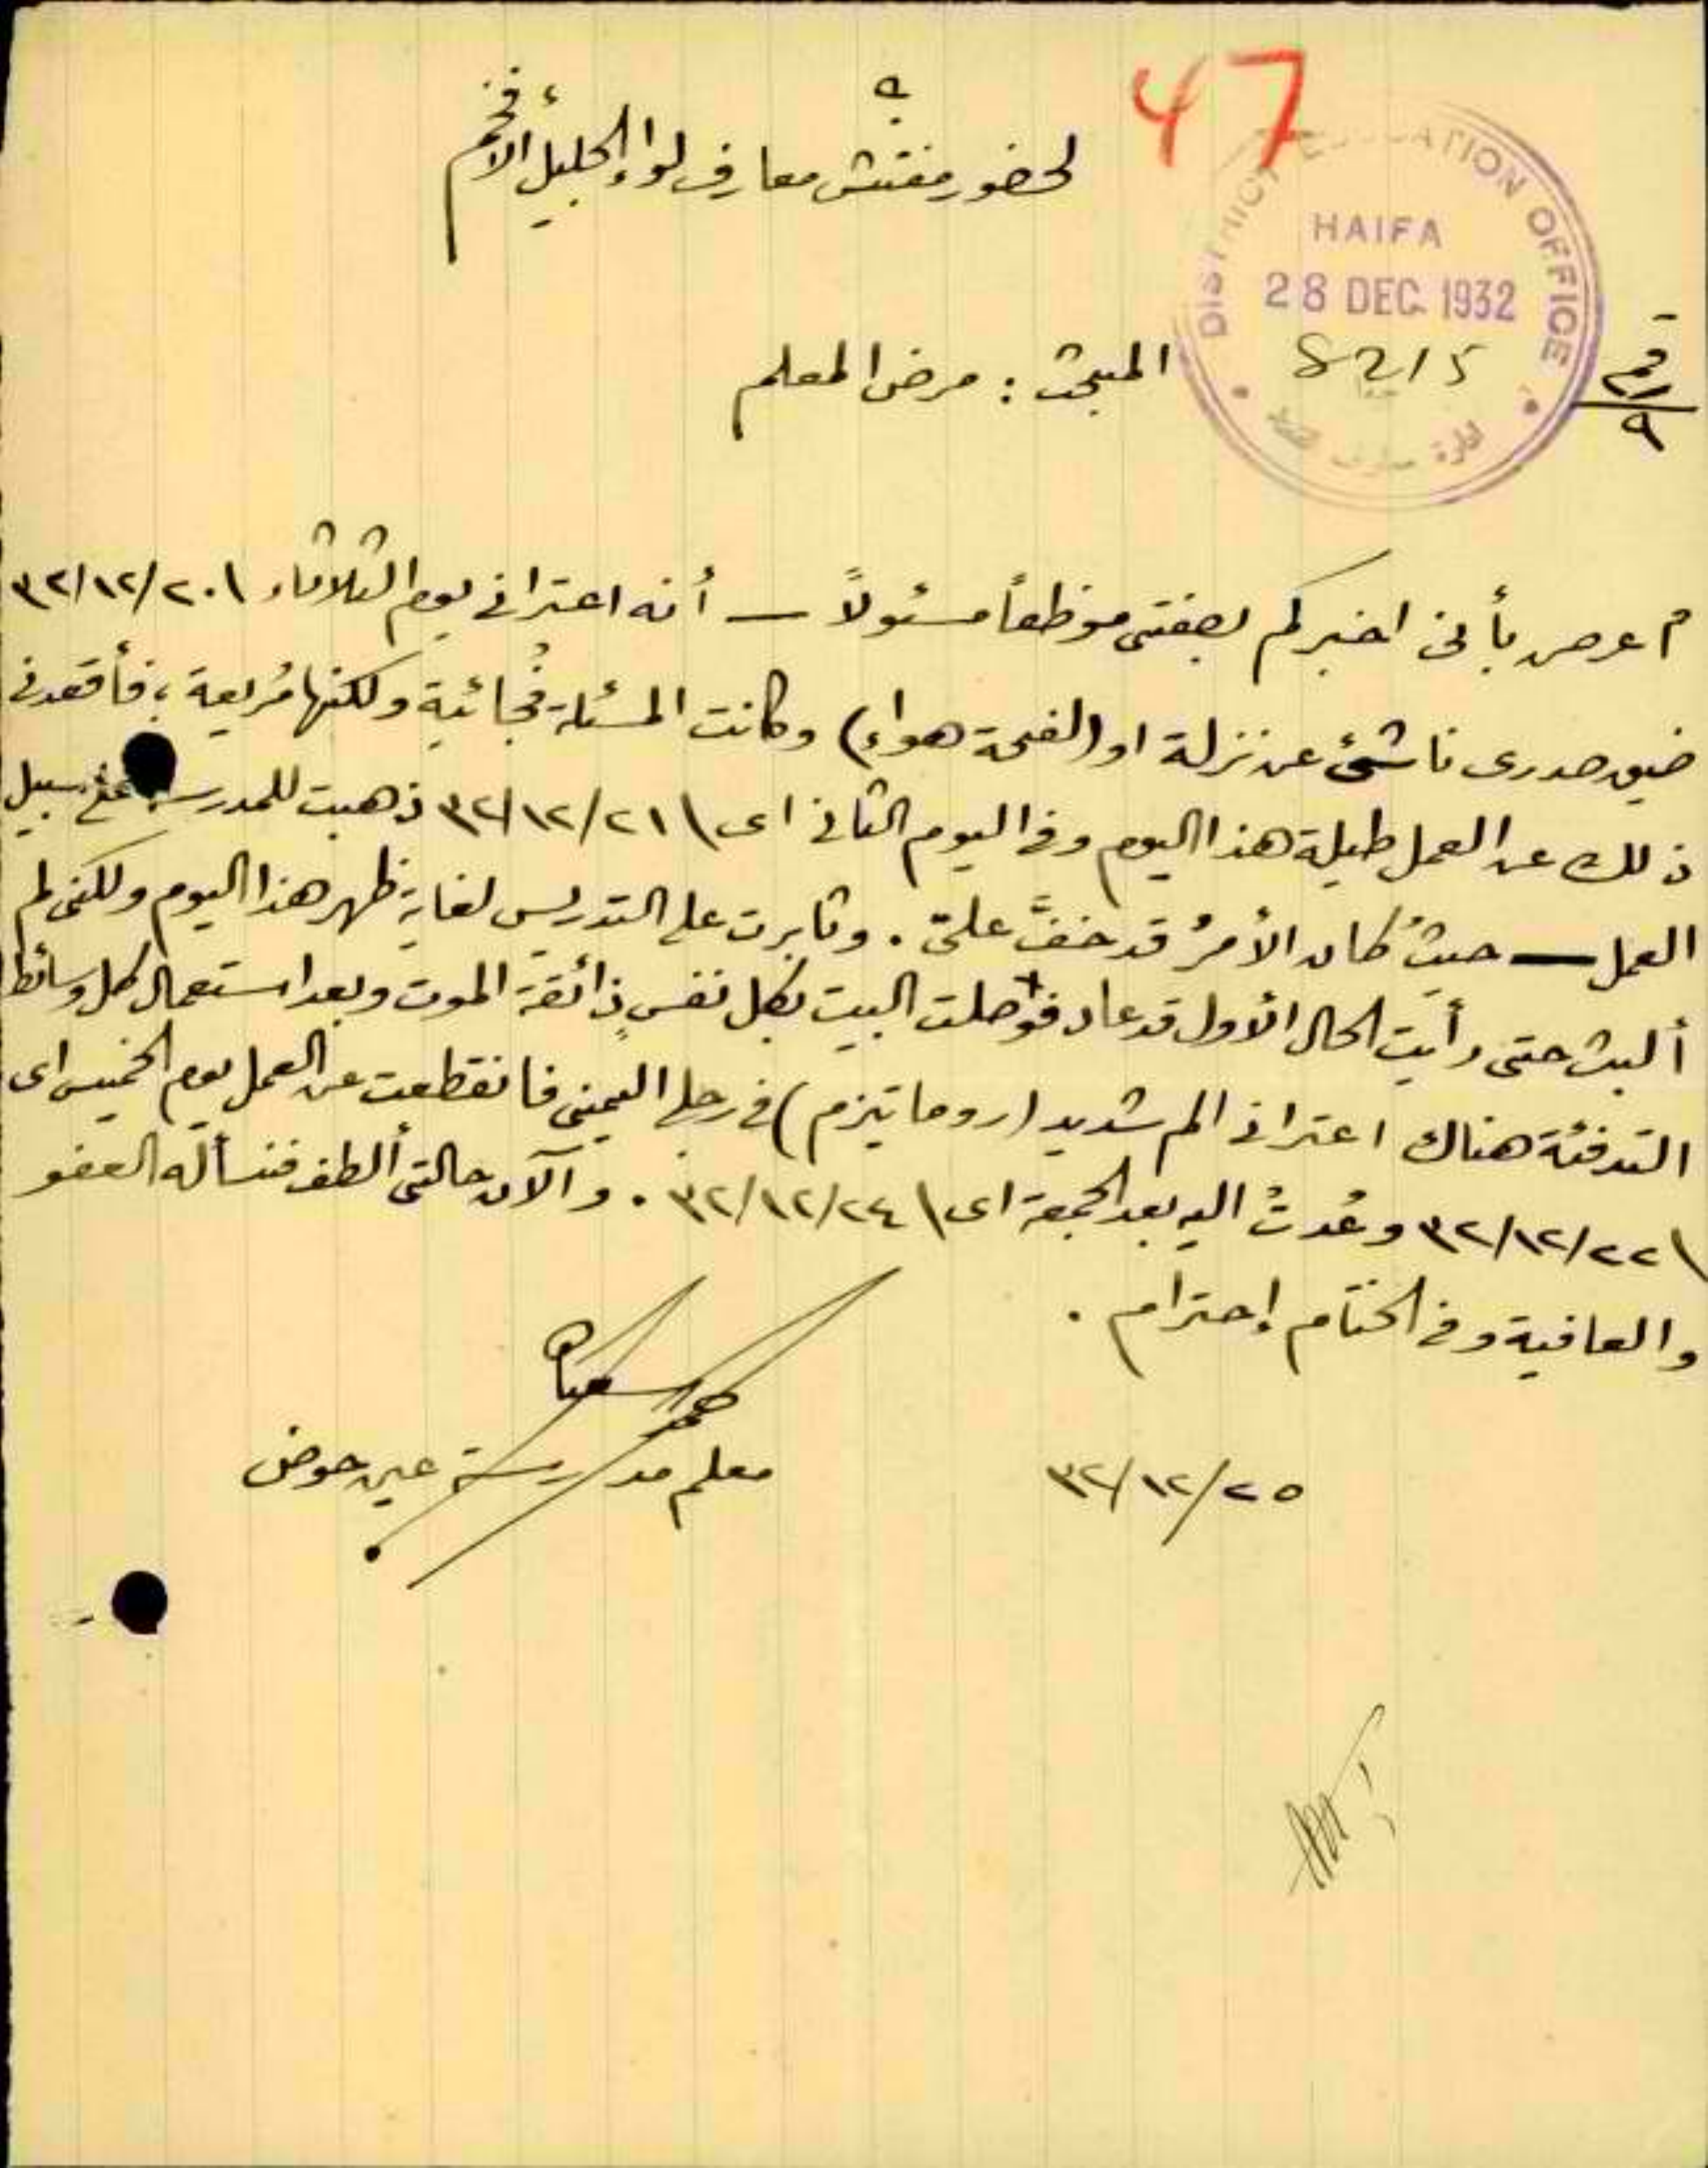 47
لحضور مفتش معارف لواء الجليل الأفخم
DISTRICT EDUCATION OFFICE
HAIFA
28 DEC. 1932
8215
ادارة معارف
رقم
٩
المبحث : مرض المعلم
م عرض بأني اخبركم بصفتي موظفاً مسئولاً — أنه اعتراني يوم الثلاثاء ٣٢/١٢/٢٠\
ضيق صدرى ناشئ عن نزلة او (لفحة هواء) وكانت المسئلة فُجائية ولكنها مُريعة ، فأقعدني
ذلك عن العمل طيلة هذا اليوم وفي اليوم الثاني اى \ ٣٢/١٢/٢١ ذهبت للمدرسة سبيل
العمل — حيثُ كان الأمرُ قد خفَّ عليّ . وثابرت على التدريس لغاية ظهر هذا اليوم ولكني لم
ألبث حتى رأيت الحال الأول قد عاد فوصلت البيت بكل نفسٍ ذائقة الموت وبعد استعمال كل وسائط
التدفئة هناك اعتراني الم شديد (روماتيزم) في رجلي اليمنى فانقطعت عن العمل يوم الخميس اى
\ ٣٢/١٢/٢٢ وعُدتُ اليه بعد الجمعة اى \ ٣٢/١٢/٢٤ . والآن حالتي ألطف فنسأله العفو
والعافية وفي الختام إحترام .
معلم مدرسة عين حوض
٣٢/١٢/٢٥